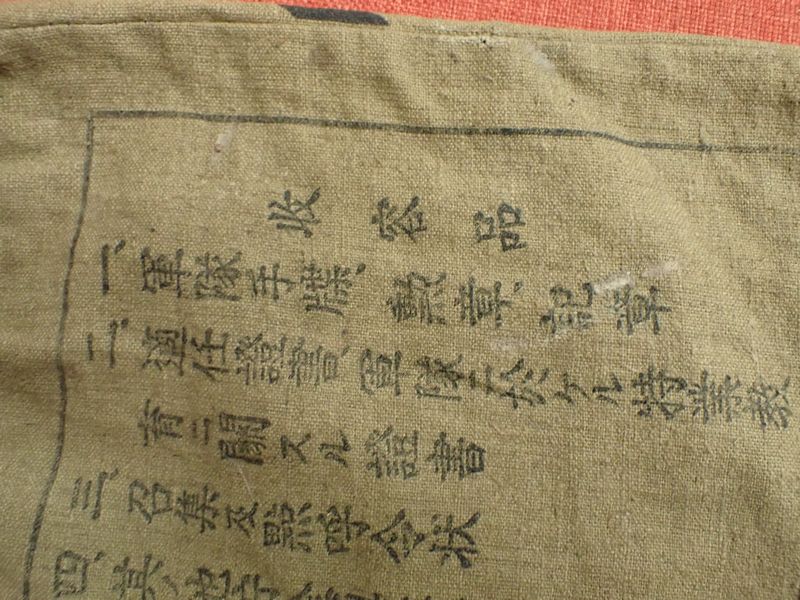 收容品
一、軍隊手牒、勲章、記章
二、適任證書、軍隊ニ於ケル特業教
育ニ關スル證書
三、召集及點呼令状
四、其ノ他